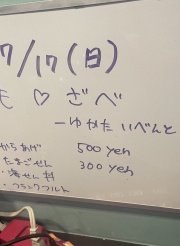 7/17(日)
も ♡ ざべ
ーゆかたいべんと
からあげ 500 yen
たまごせん 300 yen
・フランクフルト